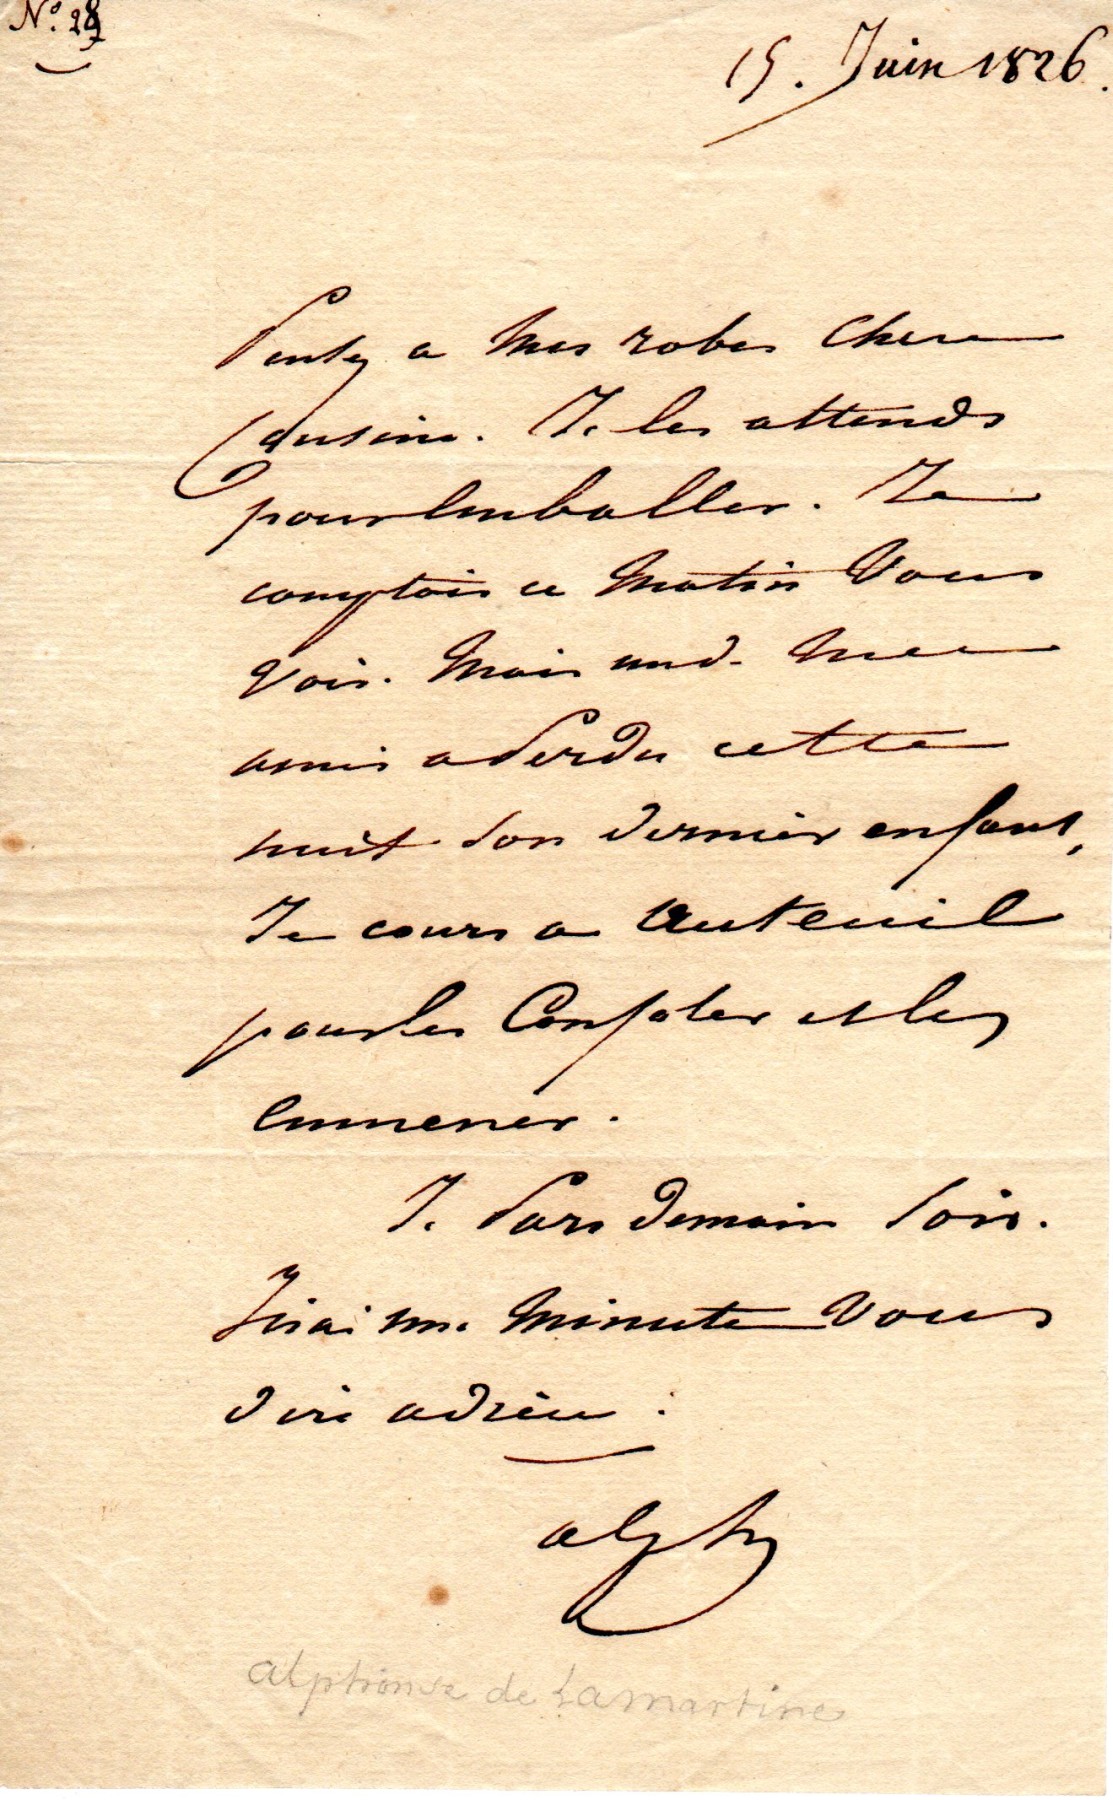 N°. 28
15. Juin 1826.
Pensez a mes robes Chere
Cousine. Je les attends
pour Emballer. Je
comptois ce matin Vous
Voir. Mais une de mes
amies a Perdu cette
nuit son dernier enfant,
Je cours a Auteuil
pour les Consoler et les
Emmener.
Je Pars demain soir.
J'irai une minute vous
dire adieu.
alph
alphonse de Lamartine